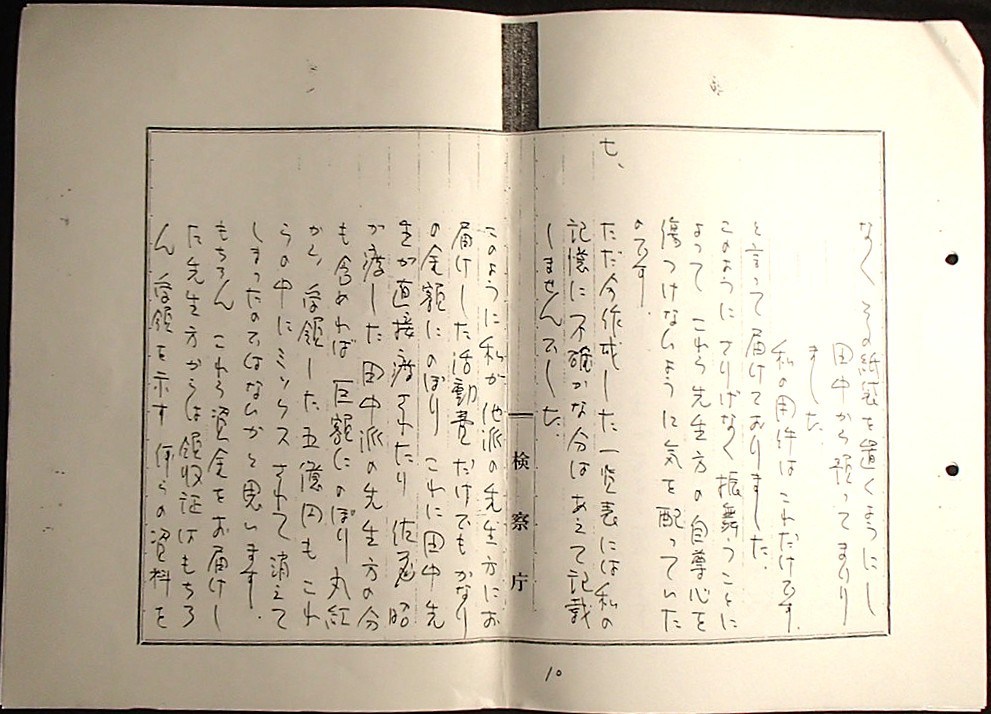 なく、その紙袋を置くようにし
田中から預ってまいり
ました。
私の用件はこれだけです。
と言って届けておりました。
このようにさりげなく振舞うことに
よって これら先生方の自尊心を
傷つけないように気を配っていた
のです。
七、
ただ今作成した一覧表には私の
記憶に不確かな分はあえて記載
しませんでした。
検察庁
このように私が他派の先生方にお
届けした活動費だけでもかなり
の金額にのぼり これに田中先
生が直接渡されたり 佐藤昭
が渡した田中派の先生方の分
も含めれば巨額にのぼり 丸紅
から、受領した五億円も これ
らの中にミックスされて消えて
しまったのではないかと思います。
もちろん これら資金をお届けし
た先生方からは領収証はもちろ
ん 受領を示す何らの資料を
10